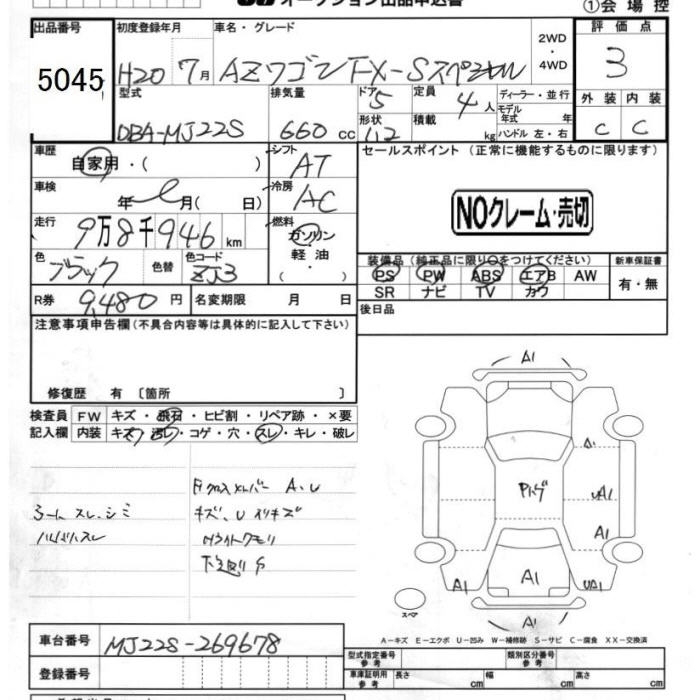 オークション出品申込書
①会場控
出品番号 初度登録年月 車名・グレード 2WD・4WD 評価点
5045 H20 7月 AZワゴン FX-Sスペシャル 3
型式 排気量 ドア 5 定員 4人 ディーラー・並行 外装 内装
DBA-MJ22S 660 cc 形状 積載 kg モデル年式 年 ハンドル 左・右 C C
車歴 自家用・( ) シフト AT セールスポイント (正常に機能するものに限ります)
車検 年 月( 日) 冷房 AC
NOクレーム・売切
走行 9万8千946km 燃料 ガソリン・軽油・( )
色 ブラック 色替 色コード ZJ3
装備品(純正品に限り○をつけてください) 新車保証書
PS PW ABS エアB AW 有・無
SR ナビ TV カワ
R券 9,480円 名変期限 月 日 後日品
注意事項申告欄(不具合内容等は具体的に記入して下さい)
修復歴 有 〔箇所 〕
検査員 FW キズ・飛石・ヒビ割・リペア跡・×要
記入欄 内装 キズ・汚レ・コゲ・穴・スレ・キレ・破レ
Fクロスメンバー A、U
ルーム スレ、シミ キズ、U
A1
A1
Pトゲ
UA1
A1
A1 A1 UA1
スペア A1
A-キズ E-エクボ U-凹み W-補修跡 S-サビ C-腐食 XX-交換済
車台番号 MJ22S-269678
登録番号
型式指定番号 参考 類別区分番号 参考
車庫証明用 参考 長さ cm 幅 cm 高さ cm